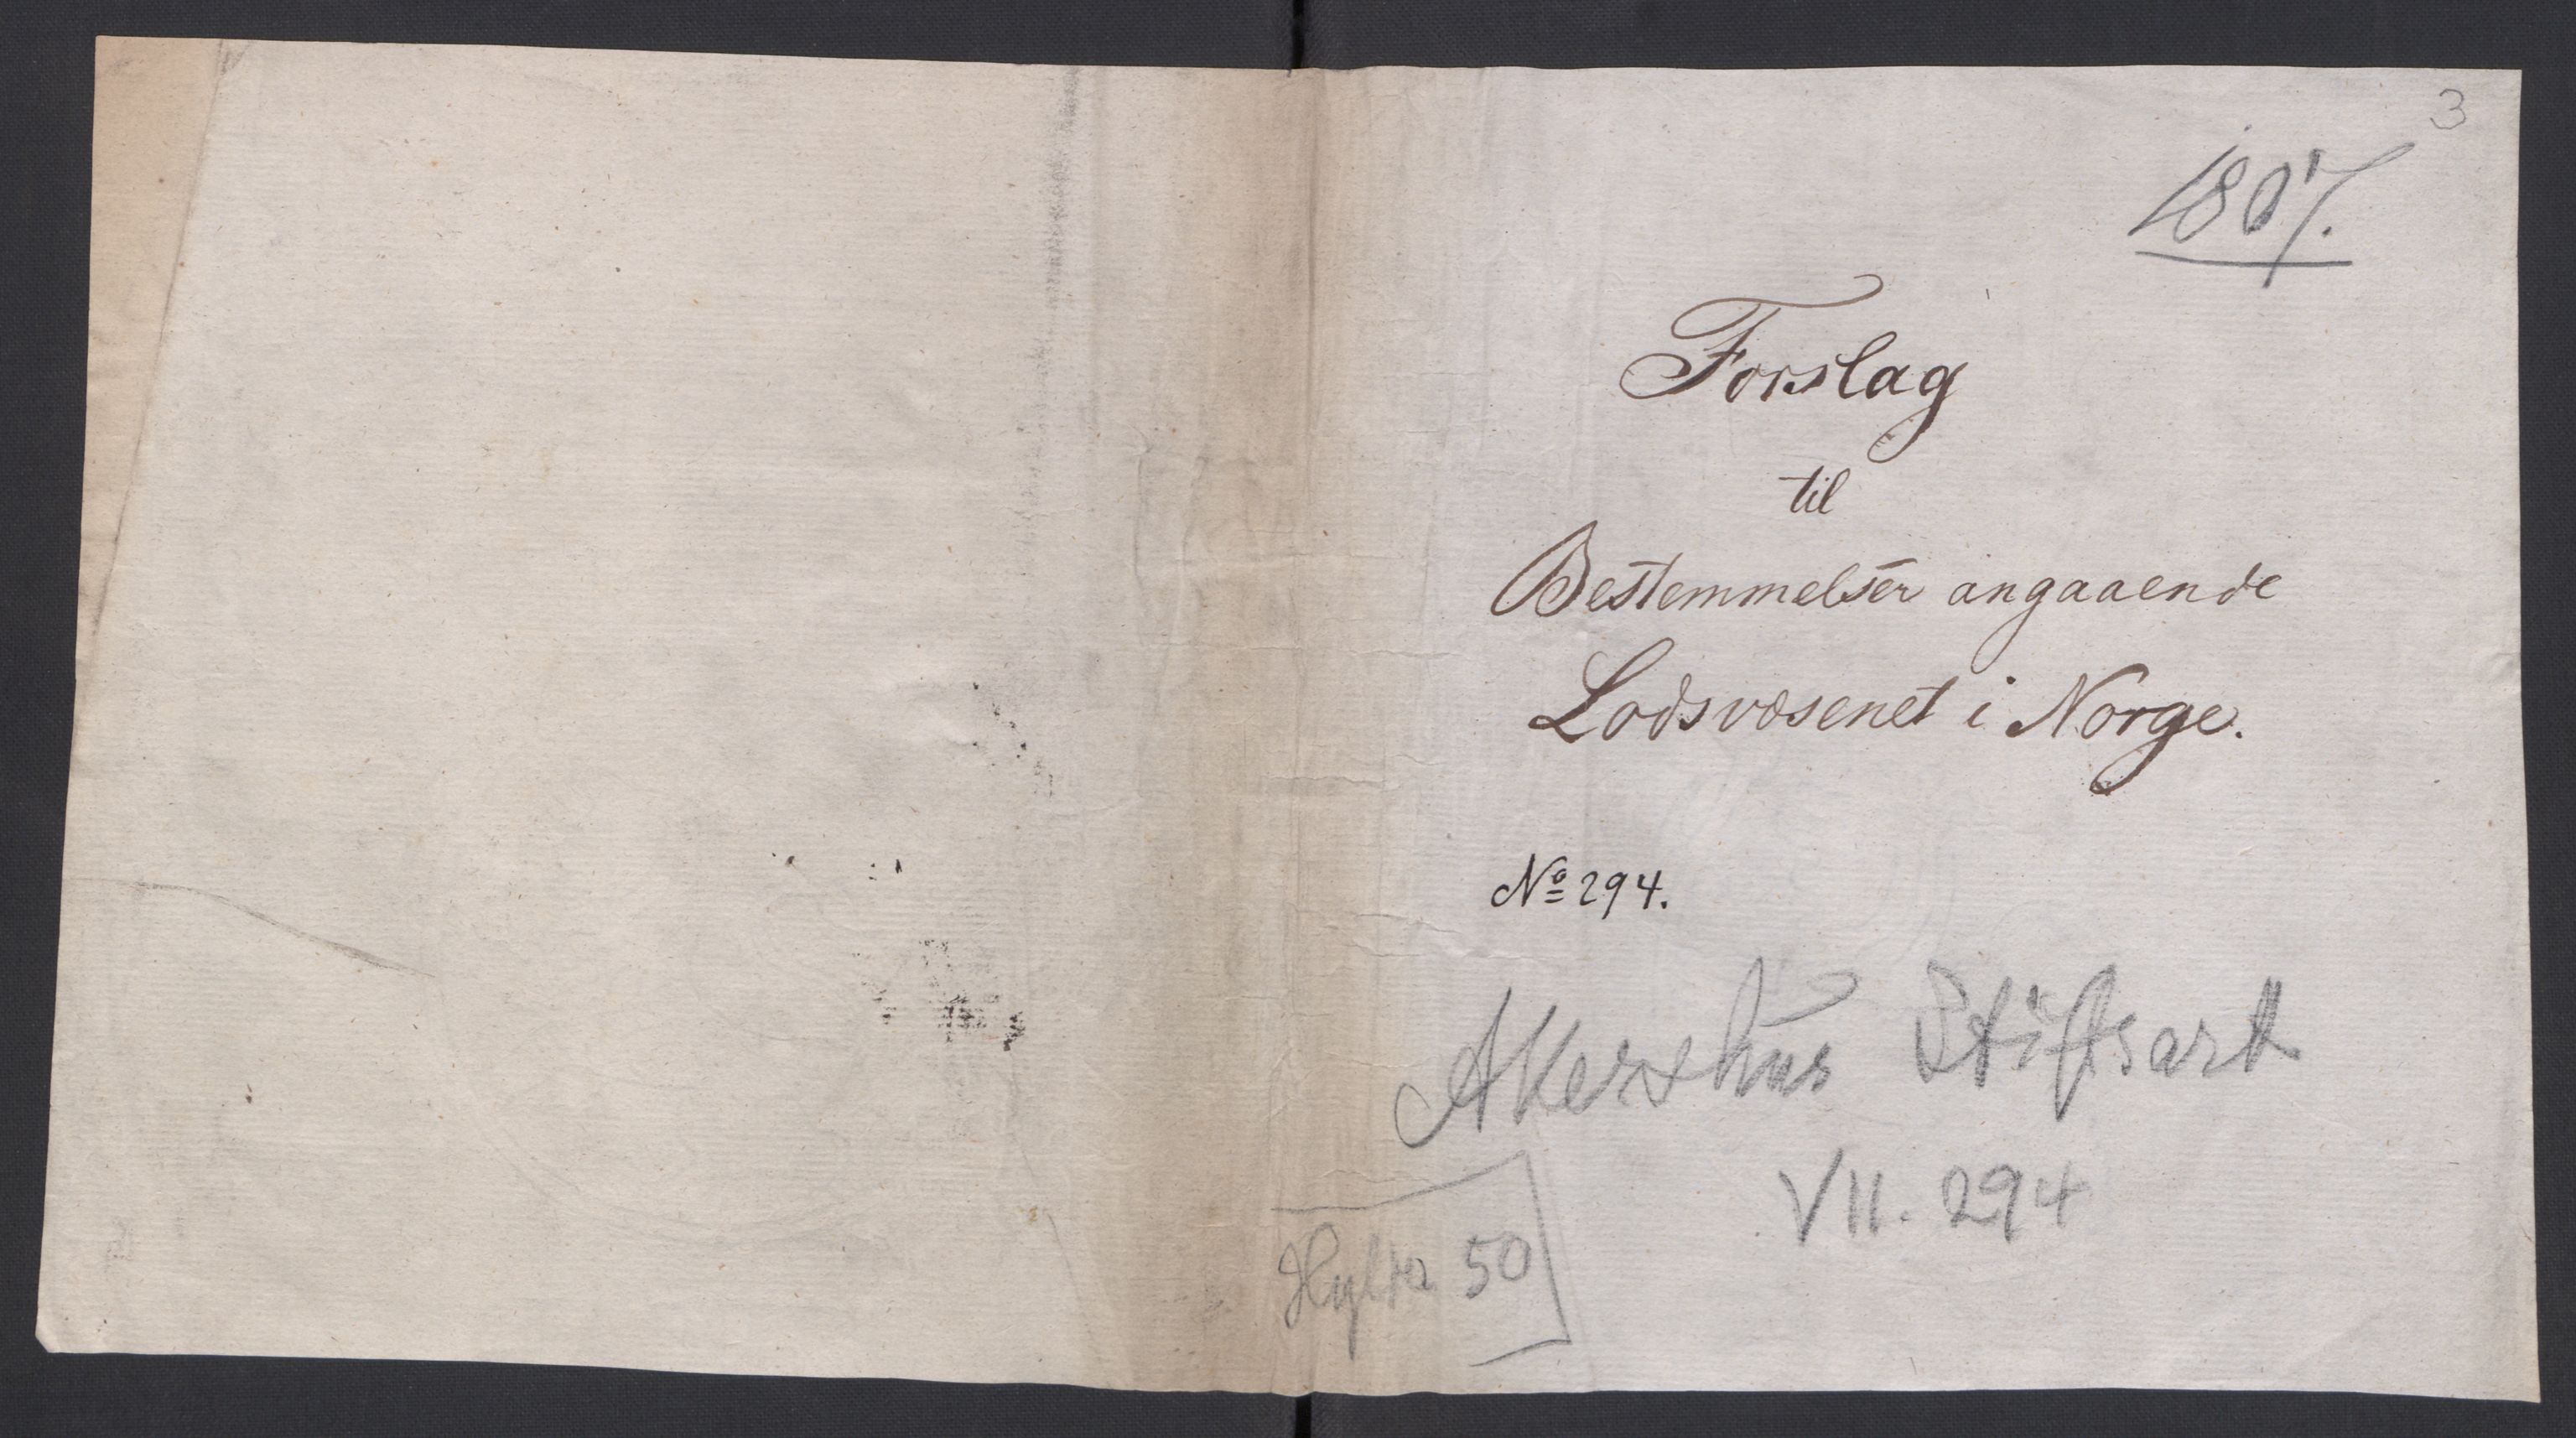 3
1807.
Forslag
til
Bestemmelser angaaende
Lodsvæsenet i Norge.
Nº 294.
Akershus Stiftsark
VII. 294
Hylla 50